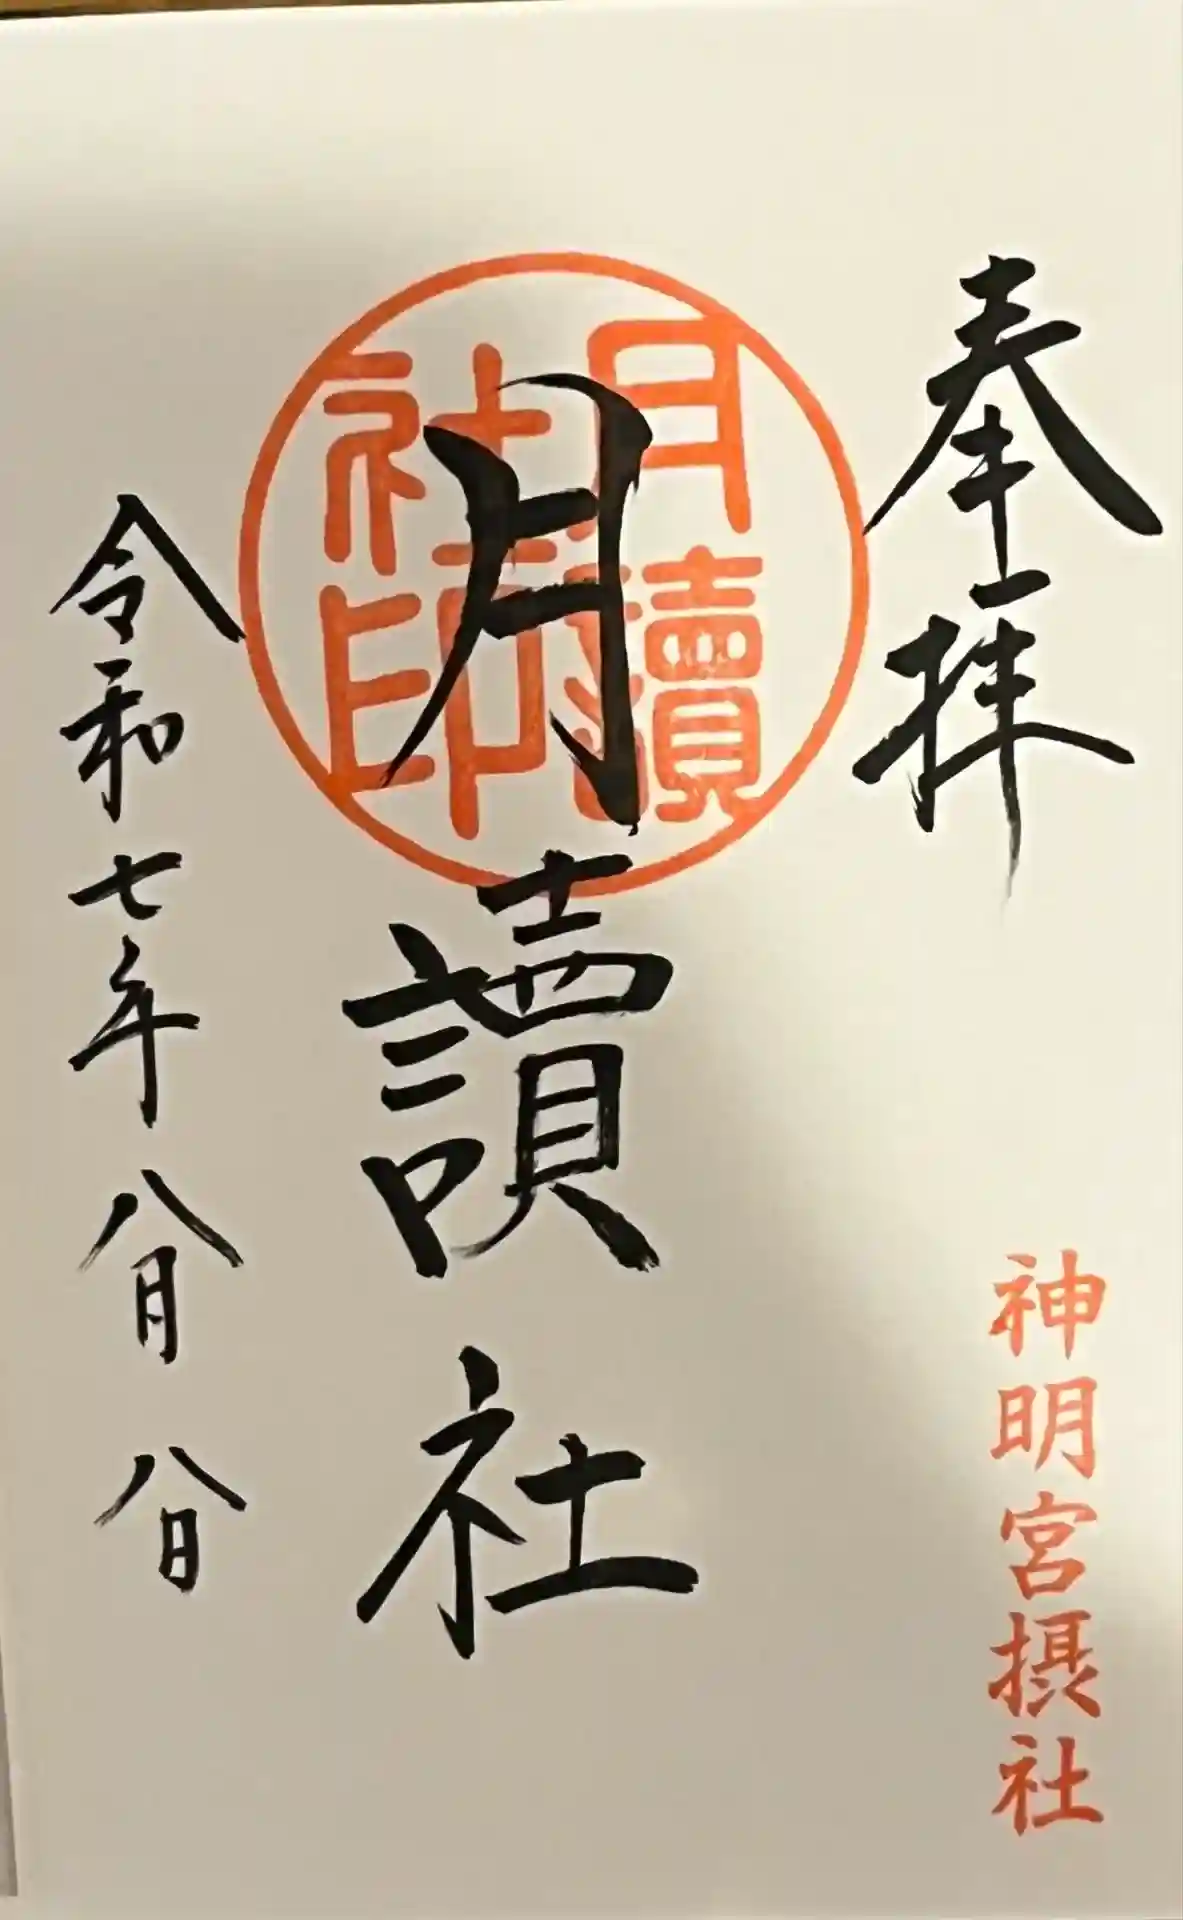 奉拝
神明宮摂社
月讀社印
月讀社
令和七年八月八日